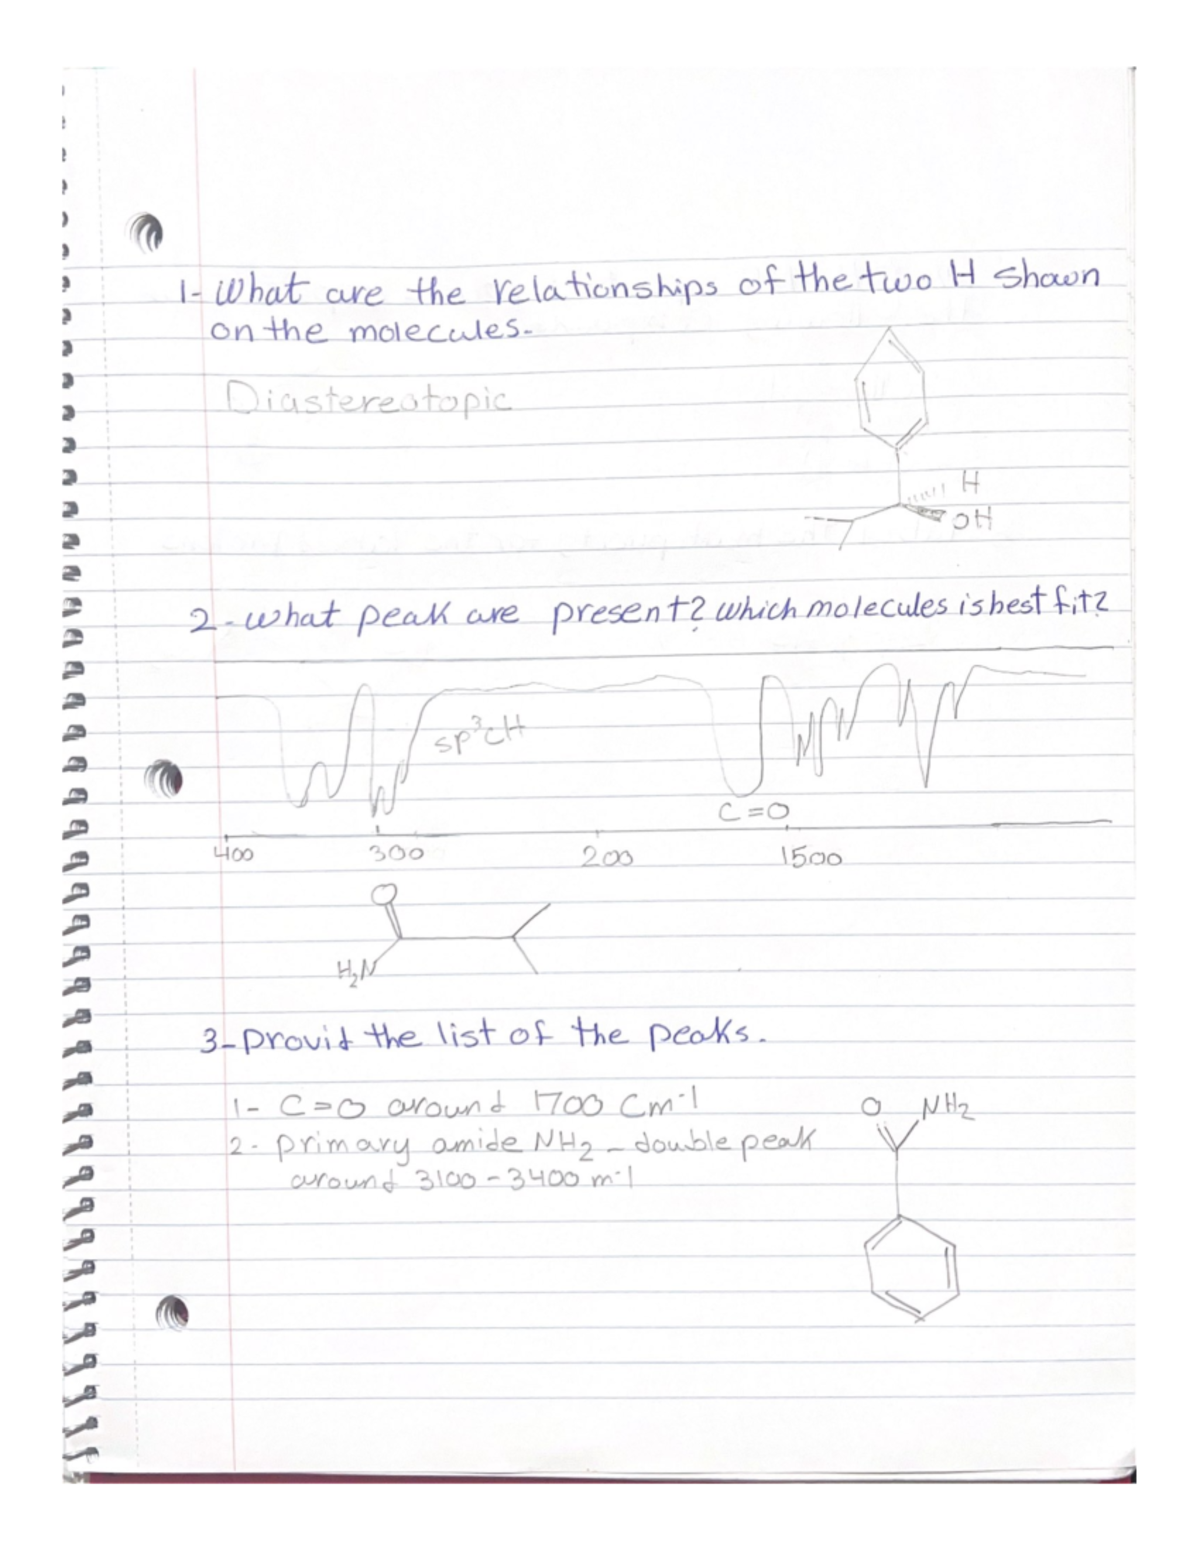 1- What are the relationships of the two H shown
on the molecules.
Diastereotopic
H
OH
2- what peak are present? which molecules is best fit?
sp³CH
C=O
400 300 200 1500
O
H₂N
3- Provid the list of the peaks.
1- C=O around 1700 Cm-1
O NH2
2- primary amide NH2 - double peak
around 3100 - 3400 m-1